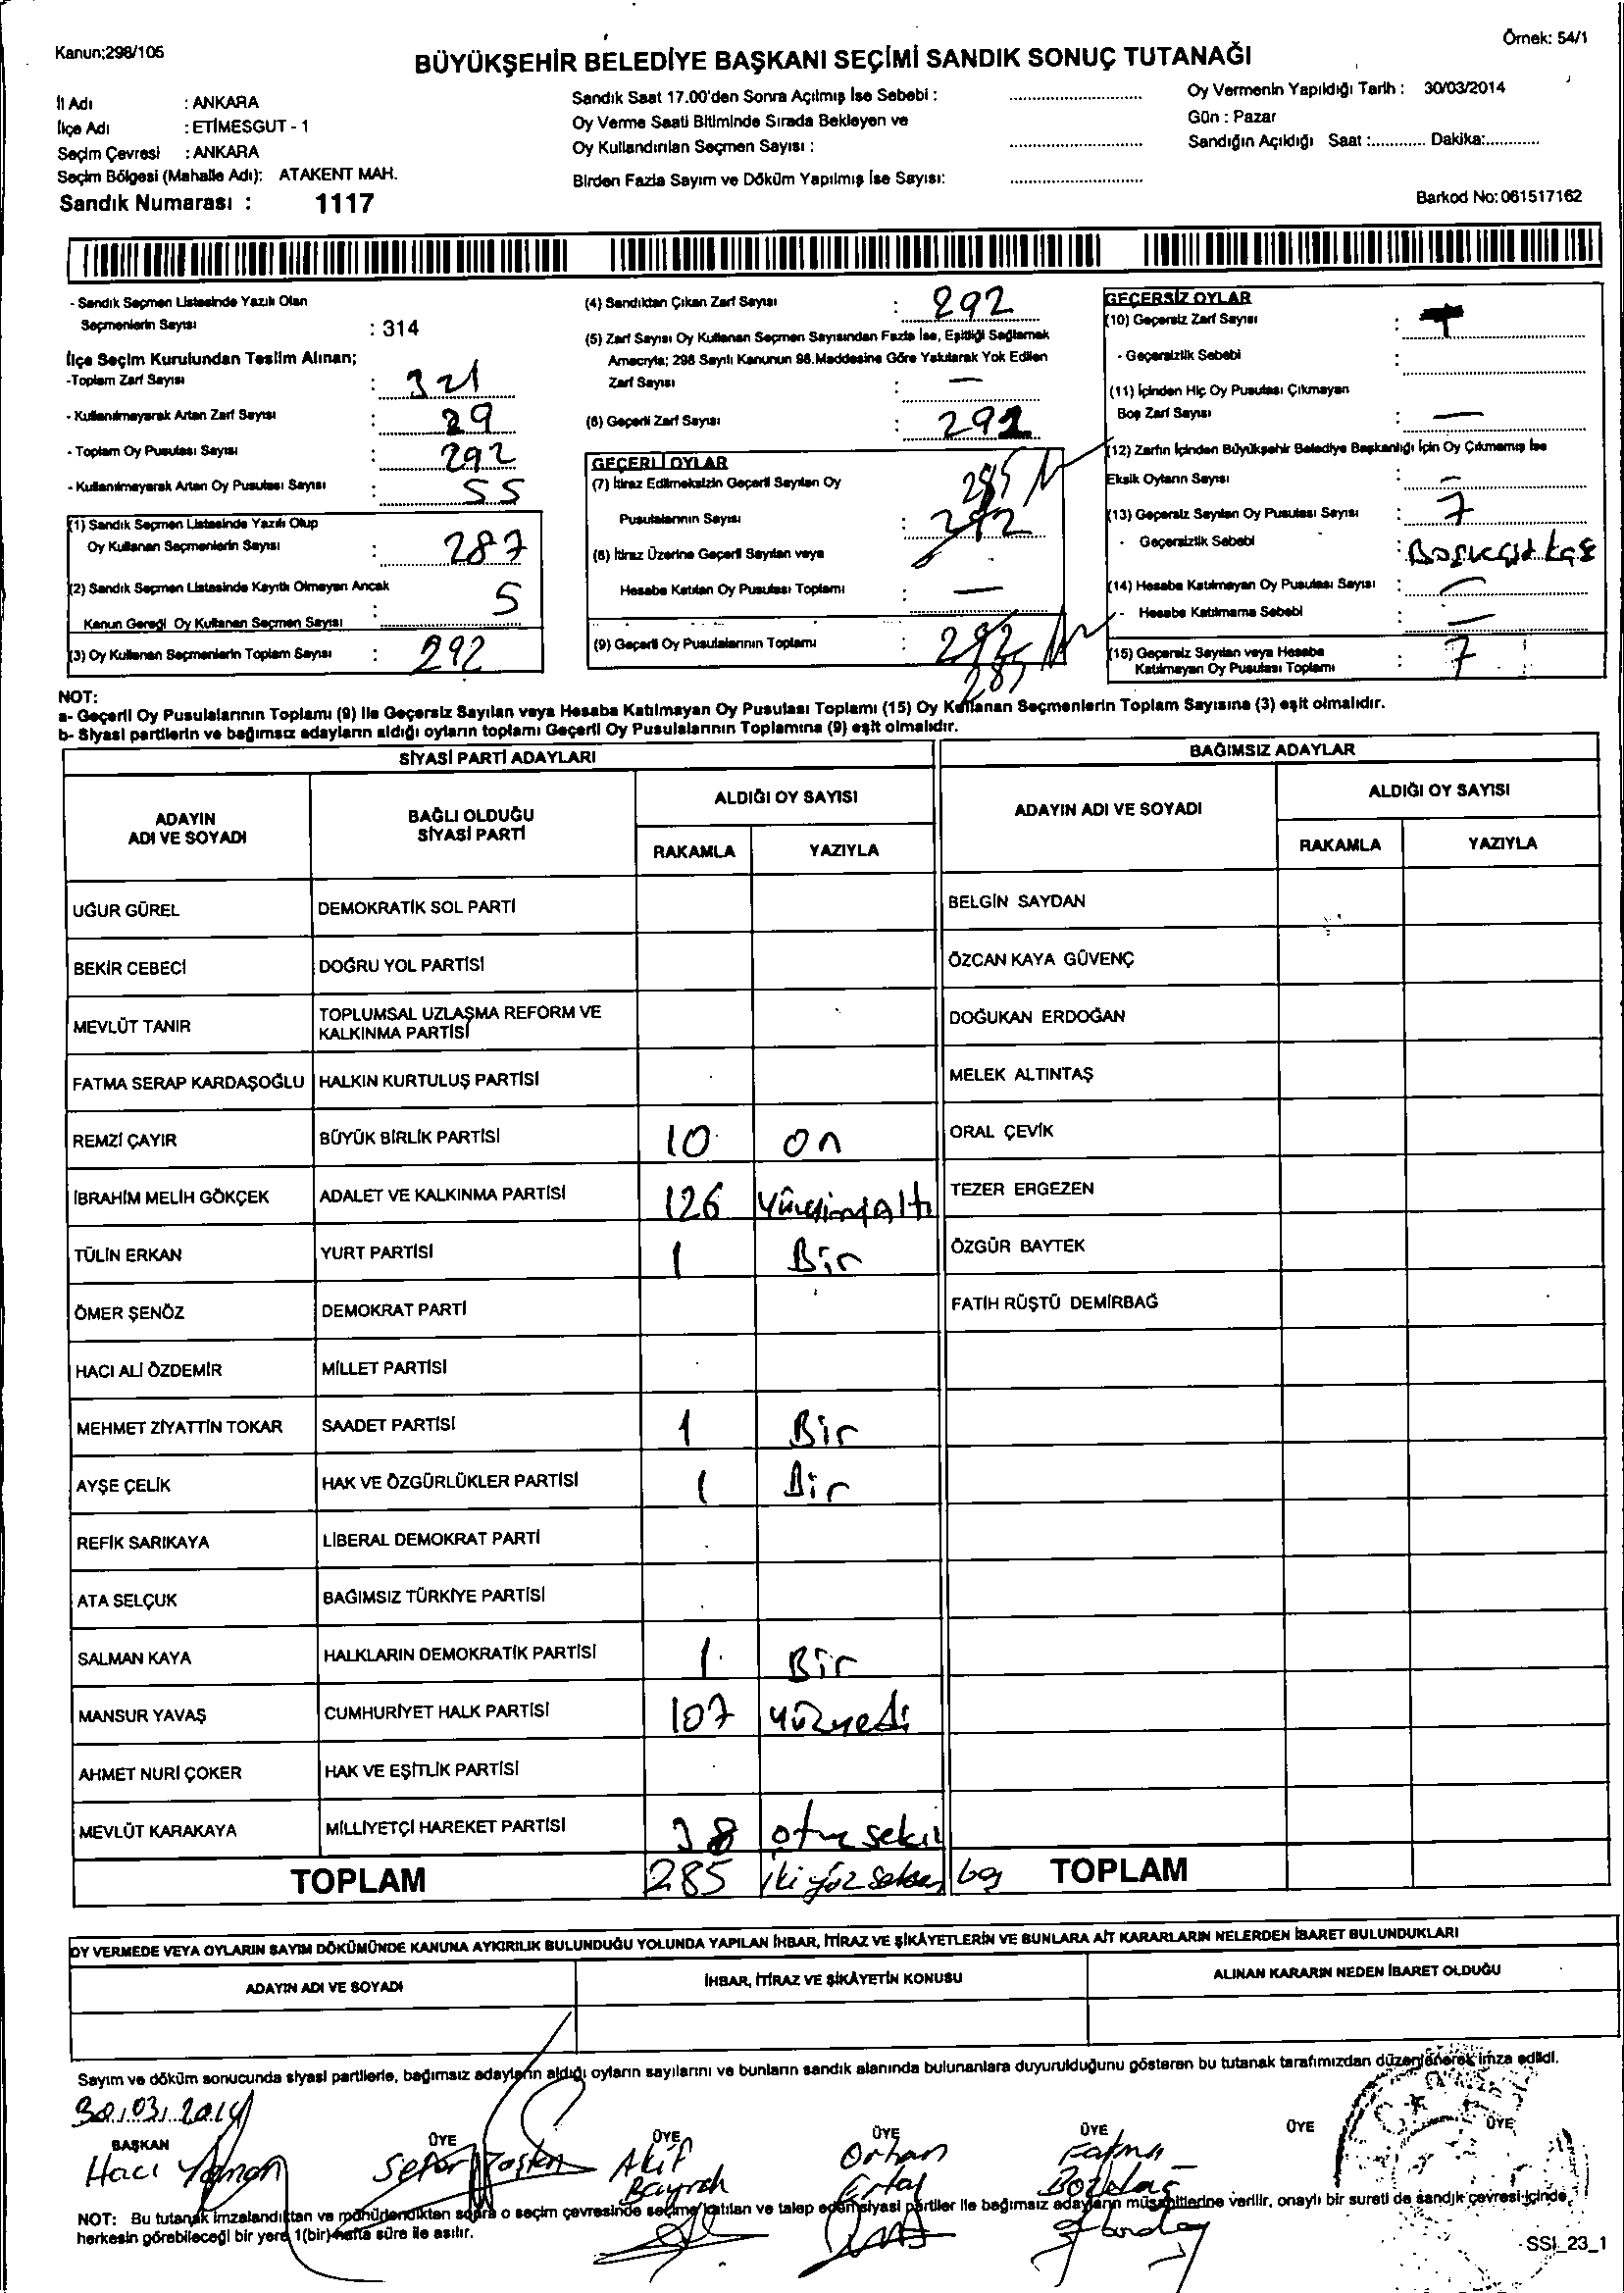 Kanun;298/105
Örnek: 54/1
BÜYÜKŞEHİR BELEDİYE BAŞKANI SEÇİMİ SANDIK SONUÇ TUTANAĞI
İl Adı : ANKARA
İlçe Adı : ETİMESGUT - 1
Seçim Çevresi : ANKARA
Seçim Bölgesi (Mahalle Adı): ATAKENT MAH.
Sandık Numarası : 1117
Sandık Saat 17.00'den Sonra Açılmış İse Sebebi :
Oy Verme Saati Bitiminde Sırada Bekleyen ve
Oy Kullandırılan Seçmen Sayısı :
Birden Fazla Sayım ve Döküm Yapılmış İse Sayısı:
Oy Vermenin Yapıldığı Tarih : 30/03/2014
Gün : Pazar
Sandığın Açıldığı Saat :............ Dakika:............
Barkod No: 061517162
- Sandık Seçmen Listesinde Yazılı Olan
Seçmenlerin Sayısı : 314
İlçe Seçim Kurulundan Teslim Alınan;
-Toplam Zarf Sayısı : 321
- Kullanılmayarak Artan Zarf Sayısı : 29
- Toplam Oy Pusulası Sayısı : 292
- Kullanılmayarak Artan Oy Pusulası Sayısı : 55
(1) Sandık Seçmen Listesinde Yazılı Olup
Oy Kullanan Seçmenlerin Sayısı : 287
(2) Sandık Seçmen Listesinde Kayıtlı Olmayan Ancak
Kanun Gereği Oy Kullanan Seçmen Sayısı : 5
(3) Oy Kullanan Seçmenlerin Toplam Sayısı : 292
(4) Sandıktan Çıkan Zarf Sayısı : 292
(5) Zarf Sayısı Oy Kullanan Seçmen Sayısından Fazla İse, Eşitliği Sağlamak
Amacıyla; 298 Sayılı Kanunun 98.Maddesine Göre Yakılarak Yok Edilen
Zarf Sayısı : —
(6) Geçerli Zarf Sayısı : 292
GEÇERLİ OYLAR
(7) İtiraz Edilmeksizin Geçerli Sayılan Oy 285
Pusulalarının Sayısı : 292
(8) İtiraz Üzerine Geçerli Sayılan veya
Hesaba Katılan Oy Pusulası Toplamı : —
(9) Geçerli Oy Pusulalarının Toplamı : 292
285
GEÇERSİZ OYLAR
(10) Geçersiz Zarf Sayısı :
- Geçersizlik Sebebi :
(11) İçinden Hiç Oy Pusulası Çıkmayan
Boş Zarf Sayısı : —
(12) Zarfın İçinden Büyükşehir Belediye Başkanlığı İçin Oy Çıkmamış İse
Eksik Oyların Sayısı : —
(13) Geçersiz Sayılan Oy Pusulası Sayısı : 7
- Geçersizlik Sebebi :
(14) Hesaba Katılmayan Oy Pusulası Sayısı : —
- Hesaba Katılmama Sebebi : —
(15) Geçersiz Sayılan veya Hesaba
Katılmayan Oy Pusulası Toplamı : 7
NOT:
a- Geçerli Oy Pusulalarının Toplamı (9) ile Geçersiz Sayılan veya Hesaba Katılmayan Oy Pusulası Toplamı (15) Oy Kullanan Seçmenlerin Toplam Sayısına (3) eşit olmalıdır.
b- Siyasi partilerin ve bağımsız adayların aldığı oyların toplamı Geçerli Oy Pusulalarının Toplamına (9) eşit olmalıdır.
SİYASİ PARTİ ADAYLARI
BAĞIMSIZ ADAYLAR
ADAYIN ADI VE SOYADI
BAĞLI OLDUĞU SİYASİ PARTİ
ALDIĞI OY SAYISI
RAKAMLA YAZIYLA
ADAYIN ADI VE SOYADI
ALDIĞI OY SAYISI
RAKAMLA YAZIYLA
UĞUR GÜREL DEMOKRATİK SOL PARTİ BELGİN SAYDAN
BEKİR CEBECİ DOĞRU YOL PARTİSİ ÖZCAN KAYA GÜVENÇ
MEVLÜT TANIR TOPLUMSAL UZLAŞMA REFORM VE KALKINMA PARTİSİ DOĞUKAN ERDOĞAN
FATMA SERAP KARDAŞOĞLU HALKIN KURTULUŞ PARTİSİ MELEK ALTINTAŞ
REMZİ ÇAYIR BÜYÜK BİRLİK PARTİSİ 10 on ORAL ÇEVİK
İBRAHİM MELİH GÖKÇEK ADALET VE KALKINMA PARTİSİ 126 TEZER ERGEZEN
TÜLİN ERKAN YURT PARTİSİ 1 Bir ÖZGÜR BAYTEK
ÖMER ŞENÖZ DEMOKRAT PARTİ FATİH RÜŞTÜ DEMİRBAĞ
HACI ALİ ÖZDEMİR MİLLET PARTİSİ
MEHMET ZİYATTİN TOKAR SAADET PARTİSİ 1 Bir
AYŞE ÇELİK HAK VE ÖZGÜRLÜKLER PARTİSİ 1 Bir
REFİK SARIKAYA LİBERAL DEMOKRAT PARTİ
ATA SELÇUK BAĞIMSIZ TÜRKİYE PARTİSİ
SALMAN KAYA HALKLARIN DEMOKRATİK PARTİSİ 1 Bir
MANSUR YAVAŞ CUMHURİYET HALK PARTİSİ 107 yüzyedi
AHMET NURİ ÇOKER HAK VE EŞİTLİK PARTİSİ
MEVLÜT KARAKAYA MİLLİYETÇİ HAREKET PARTİSİ 38 otuz sekiz
TOPLAM 285 iki yüz seksen beş TOPLAM
OY VERMEDE VEYA OYLARIN SAYIM DÖKÜMÜNDE KANUNA AYKIRILIK BULUNDUĞU YOLUNDA YAPILAN İHBAR, İTİRAZ VE ŞİKÂYETLERİN VE BUNLARA AİT KARARLARIN NELERDEN İBARET BULUNDUKLARI
ADAYIN ADI VE SOYADI İHBAR, İTİRAZ VE ŞİKÂYETİN KONUSU ALINAN KARARIN NEDEN İBARET OLDUĞU
Sayım ve döküm sonucunda siyasi partilerle, bağımsız adayların aldığı oyların sayılarını ve bunların sandık alanında bulunanlara duyurulduğunu gösteren bu tutanak tarafımızdan düzenlenerek imza edildi.
30.03.2014
BAŞKAN ÜYE ÜYE ÜYE ÜYE ÜYE ÜYE
Hacı Yaman Sefer Taşkın Akif Bayrak Orhan Ertal Fatma Bozdağ
NOT: Bu tutanak imzalandıktan ve mühürlendikten sonra o seçim çevresinde seçime katılan ve talep eden siyasi partiler ile bağımsız adayların müşahitlerine verilir, onaylı bir sureti de sandık çevresi içinde,
herkesin görebileceği bir yere 1(bir) hafta süre ile asılır.
SSI_23_1